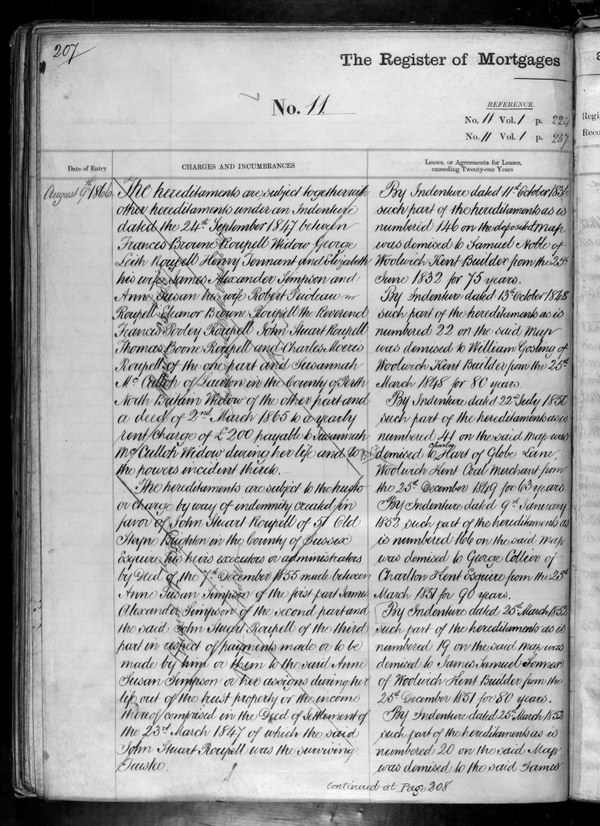 207
The Register of Mortgages
No. 11.
REFERENCE.
No. 11 Vol. 1 p. 224
No. 11 Vol. 1 p. 257
Date of Entry
CHARGES AND INCUMBRANCES
Leases, or Agreements for Leases,
exceeding Twenty-one Years
August 9th 1866
The hereditaments are subject together with
other hereditaments under an Indenture
dated the 24th September 1847 between
Frances Browne Roupell Widow George
Leith Roupell Henry Tennant and Elizabeth
his wife James Alexander Simpson and
Anne Susan his wife Robert Prioleau
Roupell Eleanor Browne Roupell the Reverend
Francis Roupell John Stuart Roupell
Thomas Boone Roupell and Charles Morris
Roupell of the one part and Susannah
McCulloh of in the County of Perth
North Britain Widow of the other part and
a deed of 2nd March 1865 to a yearly
rent Charge of £200 payable to Susannah
McCulloh Widow during her life and to
the powers incident thereto.
The hereditaments are subject to the trusts
or charge by way of indemnity created in
favor of John Stuart Roupell of 51 Old
Steyne Brighton in the County of Sussex
Esquire his heirs executors or administrators
by Deed of the 7th December 1855 made between
Anne Susan Simpson of the first part James
Alexander Simpson of the second part and
the said John Stuart Roupell of the third
part in respect of payments made or to be
made by him or them to the said Anne
Susan Simpson or her assigns during her
life out of the trust property or the income
thereof comprised in the Deed of Settlement of
the 23rd March 1847 of which the said
John Stuart Roupell was the surviving
Trustee
By Indenture dated 11th October
such part of the hereditaments as is
numbered 146 on the deposited Map
was demised to Samuel Noble of
Woolwich Kent Builder from the 25th
June 1832 for 75 years.
By Indenture dated 13th October 1848
such part of the hereditaments as is
numbered 22 on the said Map
was demised to William Gosling of
Woolwich Kent Builder from the 25th
March 1848 for 80 years.
By Indenture dated 22nd July 1850
such part of the hereditaments as is
numbered 41 on the said Map was
demised to Charles Hart of Globe Lane
Woolwich Kent Coal Merchant from
the 25th December 1849 for 63 years.
By Indenture dated 9th January
1852 such part of the hereditaments as
is numbered 166 on the said Map
was demised to George Collier of
Charlton Kent Esquire from the 25th
March 1851 for 90 years.
By Indenture dated 25th March 1852
such part of the hereditaments as is
numbered 19 on the said Map was
demised to James Samuel
of Woolwich Kent Builder from the
25th December 1851 for 80 years.
By Indenture dated 25th March 1852
such part of the hereditaments as is
numbered 20 on the said Map
was demised to the said James
Continued at Page 208